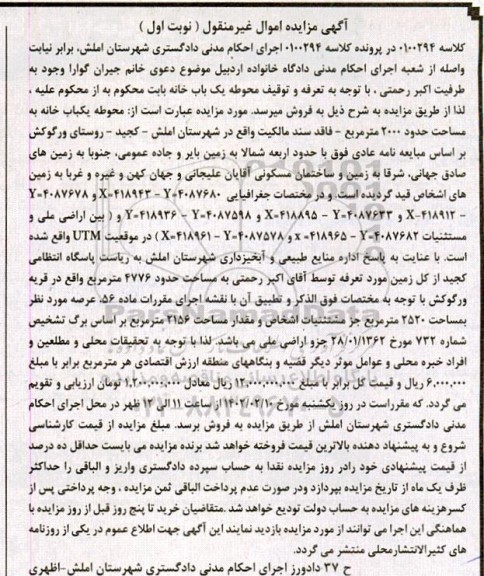 آگهی مزایده اموال غیرمنقول ( نوبت اول )
کلاسه ۰۱۰۰۲۹۴ در پرونده کلاسه ۰۱۰۰۲۹۴ اجرای احکام مدنی دادگستری شهرستان املش، برابر نیابت
واصله از شعبه اجرای احکام مدنی دادگاه خانواده اردبیل موضوع دعوی خانم جیران گوارا وجود به
ظرفیت اکبر رحمتی ، با توجه به تعرفه و توقیف محوطه یک باب خانه بابت محکوم به از محکوم علیه ،
لذا از طریق مزایده به شرح ذیل به فروش میرسد. مورد مزایده عبارت است از: محوطه یکباب خانه به
مساحت حدود ۲۰۰۰ مترمربع - فاقد سند مالکیت واقع در شهرستان املش - کجید - روستای ورگوکش
بر اساس مبایعه نامه عادی فوق با حدود اربعه شمالا به زمین بایر و جاده عمومی، جنوبا به زمین های
صادق جهانی، شرقا به زمین و ساختمان مسکونی آقایان علیجانی و جهان کهن و غیره و غربا به زمین
های اشخاص قید گردیده است. و در مختصات جغرافیایی Y=۴۰۸۷۶۸۰ - X=۴۱۸۹۴۳ و Y=۴۰۸۷۶۷۸
- X=۴۱۸۹۱۲ و Y=۴۰۸۷۶۳۳ - X=۴۱۸۸۹۵ و Y=۴۰۸۷۵۹۸ - Y=۴۱۸۹۳۶ و ( بین اراضی ملی و
مستثنیات Y=۴۰۸۷۶۸۲ - x=۴۱۸۹۶۵ و Y=۴۰۸۷۵۷۸ - X=۴۱۸۹۶۱ ) در موقعیت UTM واقع شده
است. با عنایت به پاسخ اداره منابع طبیعی و آبخیزداری شهرستان املش به ریاست پاسگاه انتظامی
کجید از کل زمین مورد تعرفه توسط آقای اکبر رحمتی به مساحت حدود ۴۷۷۶ مترمربع واقع در قریه
ورگوکش با توجه به مختصات فوق الذکر و تطبیق آن با نقشه اجرای مقررات ماده ۵۶، عرصه مورد نظر
بمساحت ۲۵۲۰ مترمربع جز مستثنیات اشخاص و مقدار مساحت ۲۱۵۶ مترمربع بر اساس برگ تشخیص
شماره ۷۳۲ مورخ ۲۸/۰۱/۱۳۶۲ جزو اراضی ملی می باشد. لذا با توجه به تحقیقات محلی و مطلعین و
افراد خبره محلی و عوامل موثر دیگر قضیه و بنگاههای منطقه ارزش اقتصادی هر مترمربع برابر با مبلغ
۶,۰۰۰,۰۰۰ ریال و قیمت کل برابر با مبلغ ۱۲,۰۰۰,۰۰۰,۰۰۰ ریال معادل ۱,۲۰۰,۰۰۰,۰۰۰ تومان ارزیابی و تقویم
می گردد. که مقرراست در روز یکشنبه مورخ ۱۴۰۲/۰۲/۱۰ از ساعت ۱۱ الی ۱۲ ظهر در محل اجرای احکام
مدنی دادگستری شهرستان املش از طریق مزایده به فروش برسد. مبلغ مزایده از قیمت کارشناسی
شروع و به پیشنهاد دهنده بالاترین قیمت فروخته خواهد شد برنده مزایده می بایست حداقل ده درصد
از قیمت پیشنهادی خود رادر روز مزایده نقدا به حساب سپرده دادگستری واریز و الباقی را حداکثر
ظرف یک ماه از تاریخ مزایده بپردازد ودر صورت عدم پرداخت الباقی ثمن مزایده ، وجه پرداختی پس از
کسرهزینه های مزایده به حساب دولت تودیع خواهد شد .متقاضیان خرید تا پنج روز قبل از روز مزایده با
هماهنگی این اجرا می توانند از مورد مزایده بازدید نمایند این آگهی جهت اطلاع عموم در یکی از روزنامه
های کثیرالانتشارمحلی منتشر می گردد.
ح ۳۷ دادورز اجرای احکام مدنی دادگستری شهرستان املش-اظهری